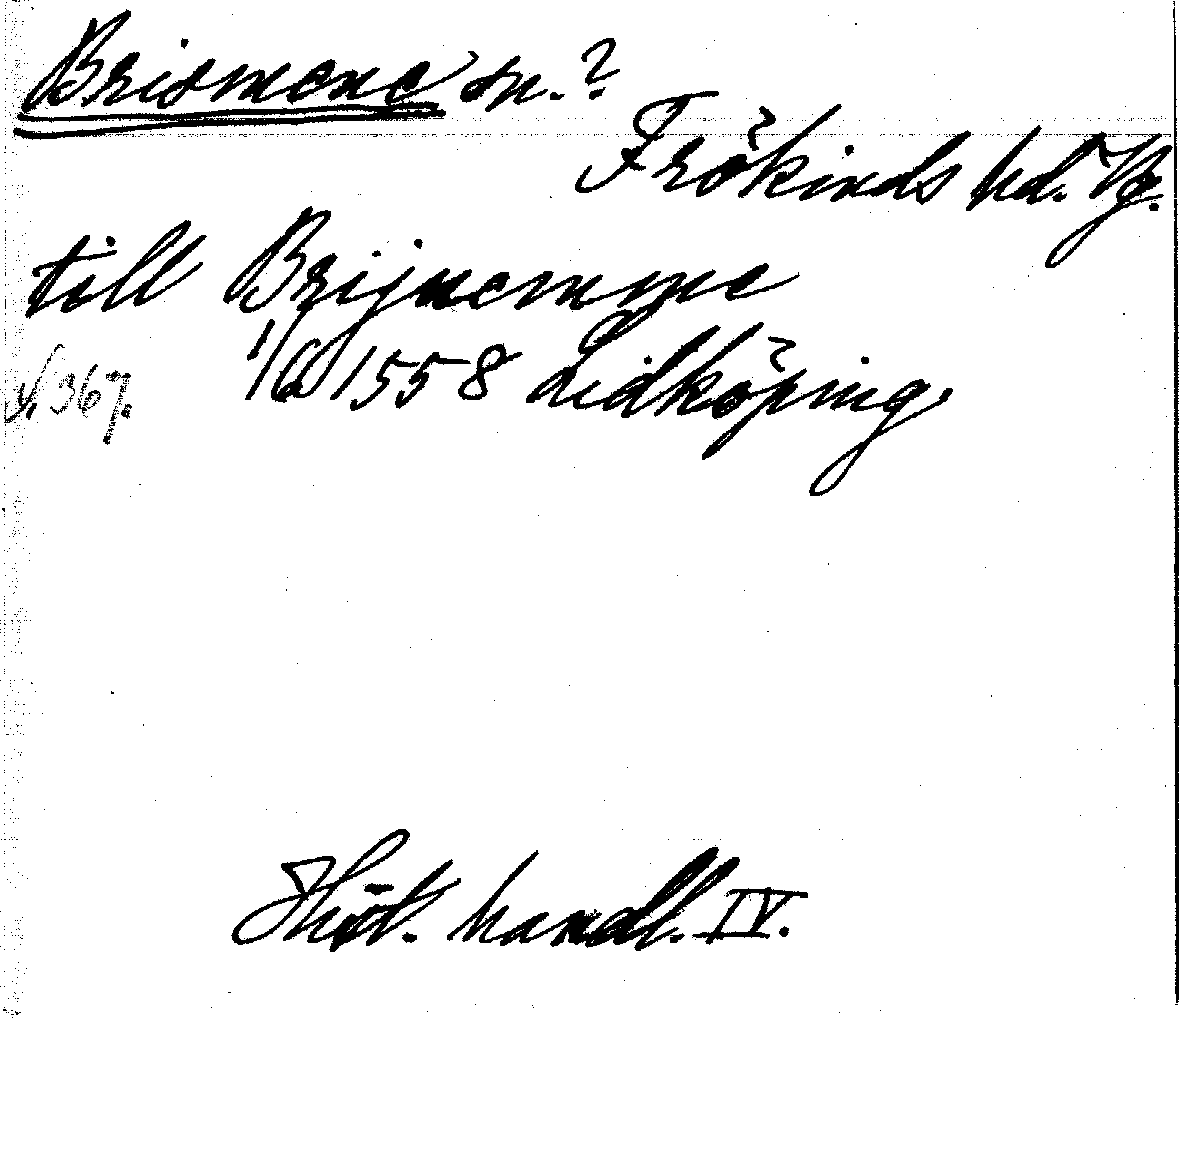 Brismene sn.?
Frökinds hd. Vg.
till Brijnemme
1/6 1558 Lidköping.
s. 367.
Hist. handl. IV.